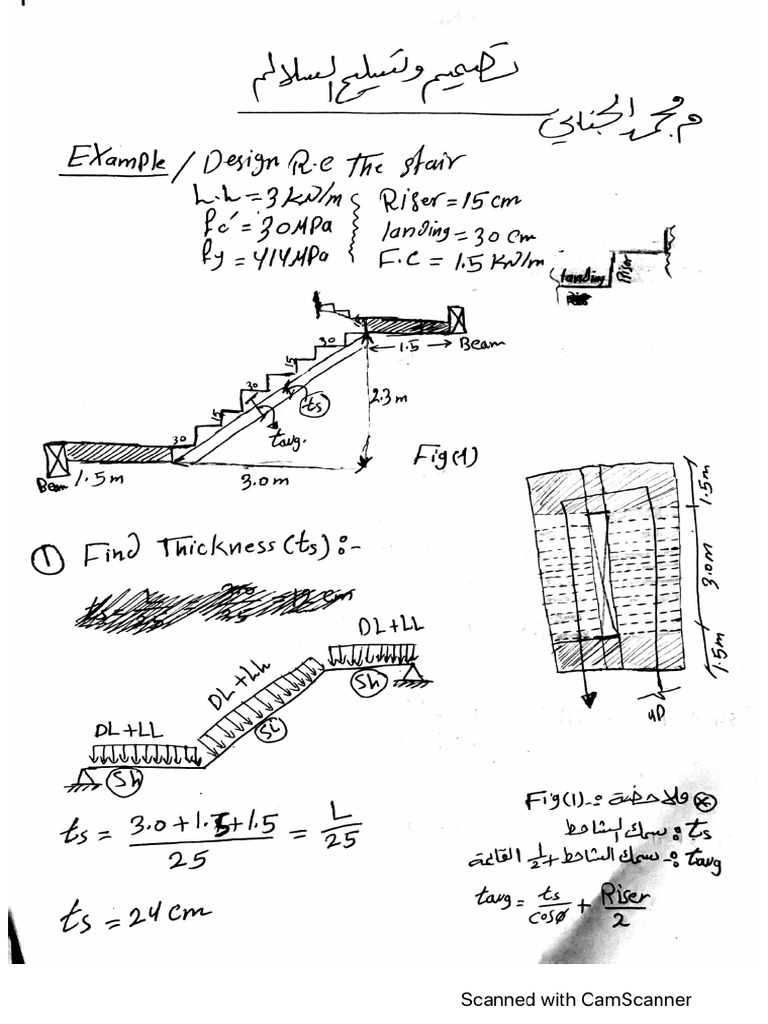 تصميم وتسليح السلالم
م. محمد الجنابي
Example / Design R.c The stair
L.L = 3 kN/m
fc' = 30 MPa
fy = 414 MPa
Riser = 15 cm
landing = 30 cm
F.C = 1.5 kN/m
landing
Riser
30
1.5
Beam
15
30
15
30
ts
tavg.
2.3 m
Fig(1)
Beam
1.5m
3.0m
1.5m
3.0m
1.5m
UP
① Find Thickness (ts) :-
DL+LL
Sh
DL+LL
Si
DL+LL
Sh
ts = 3.0+1.5+1.5 / 25 = L / 25
ts = 24 cm
ملاحضة :- Fig(1)
ts : سمك الشاحط
tavg :- سمك الشاحط + 1/2 القائمة
tavg = ts / cosø + Riser / 2
Scanned with CamScanner